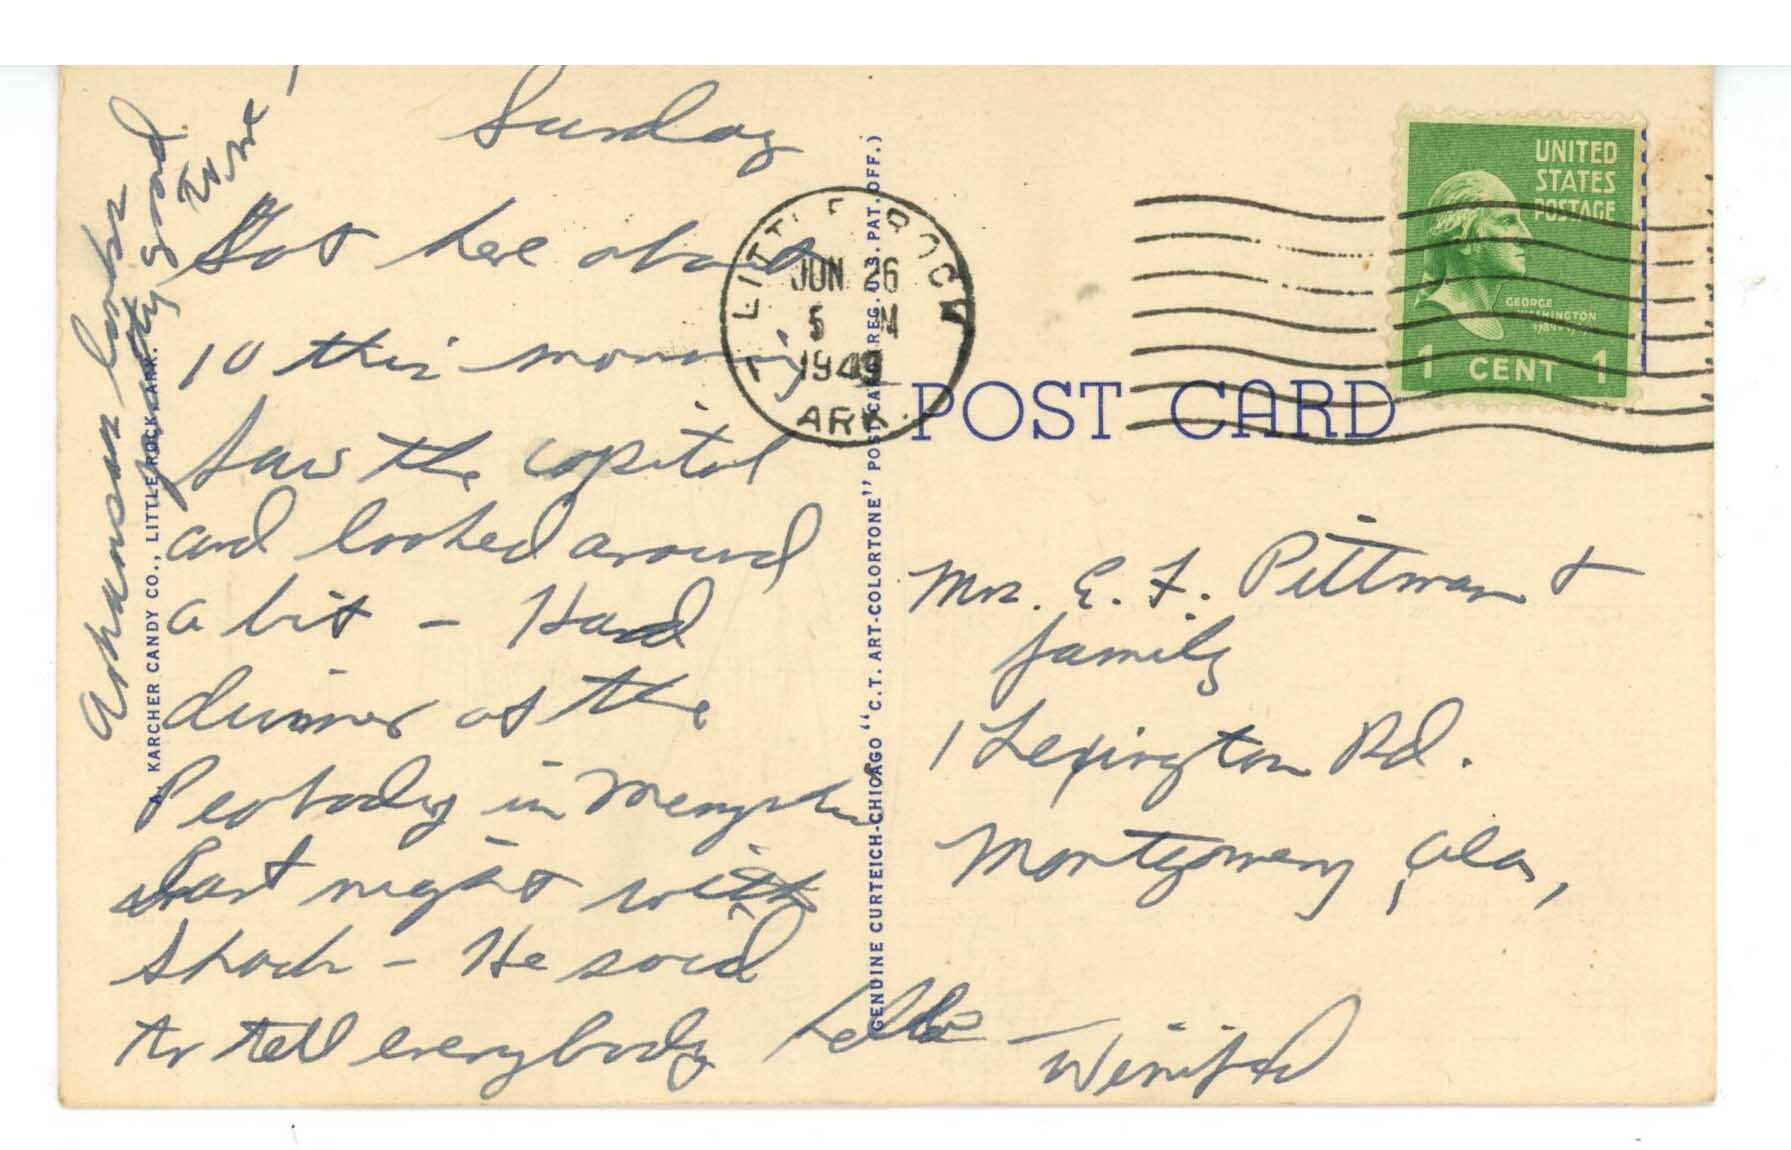 Sunday
Got here about
10 this morning
Saw the capitol
and looked around
a bit - Had
dinner at the
Peabody in Memphis
last night with
Shack - He said
to tell everybody hello
- Winifred
Arkansas looks
pretty good
to me!
A. KARCHER CANDY CO., LITTLE ROCK, ARK.
GENUINE CURTEICH-CHICAGO "C.T. ART-COLORTONE" POST CARD REG. U.S. PAT. OFF.)
LITTLE ROCK
JUN 26
5 M
1949
ARK.
POST CARD
UNITED
STATES
POSTAGE
GEORGE
WASHINGTON
1 CENT 1
Mrs. E. F. Pittman &
family
1 Lexington Rd.
Montgomery, Ala,